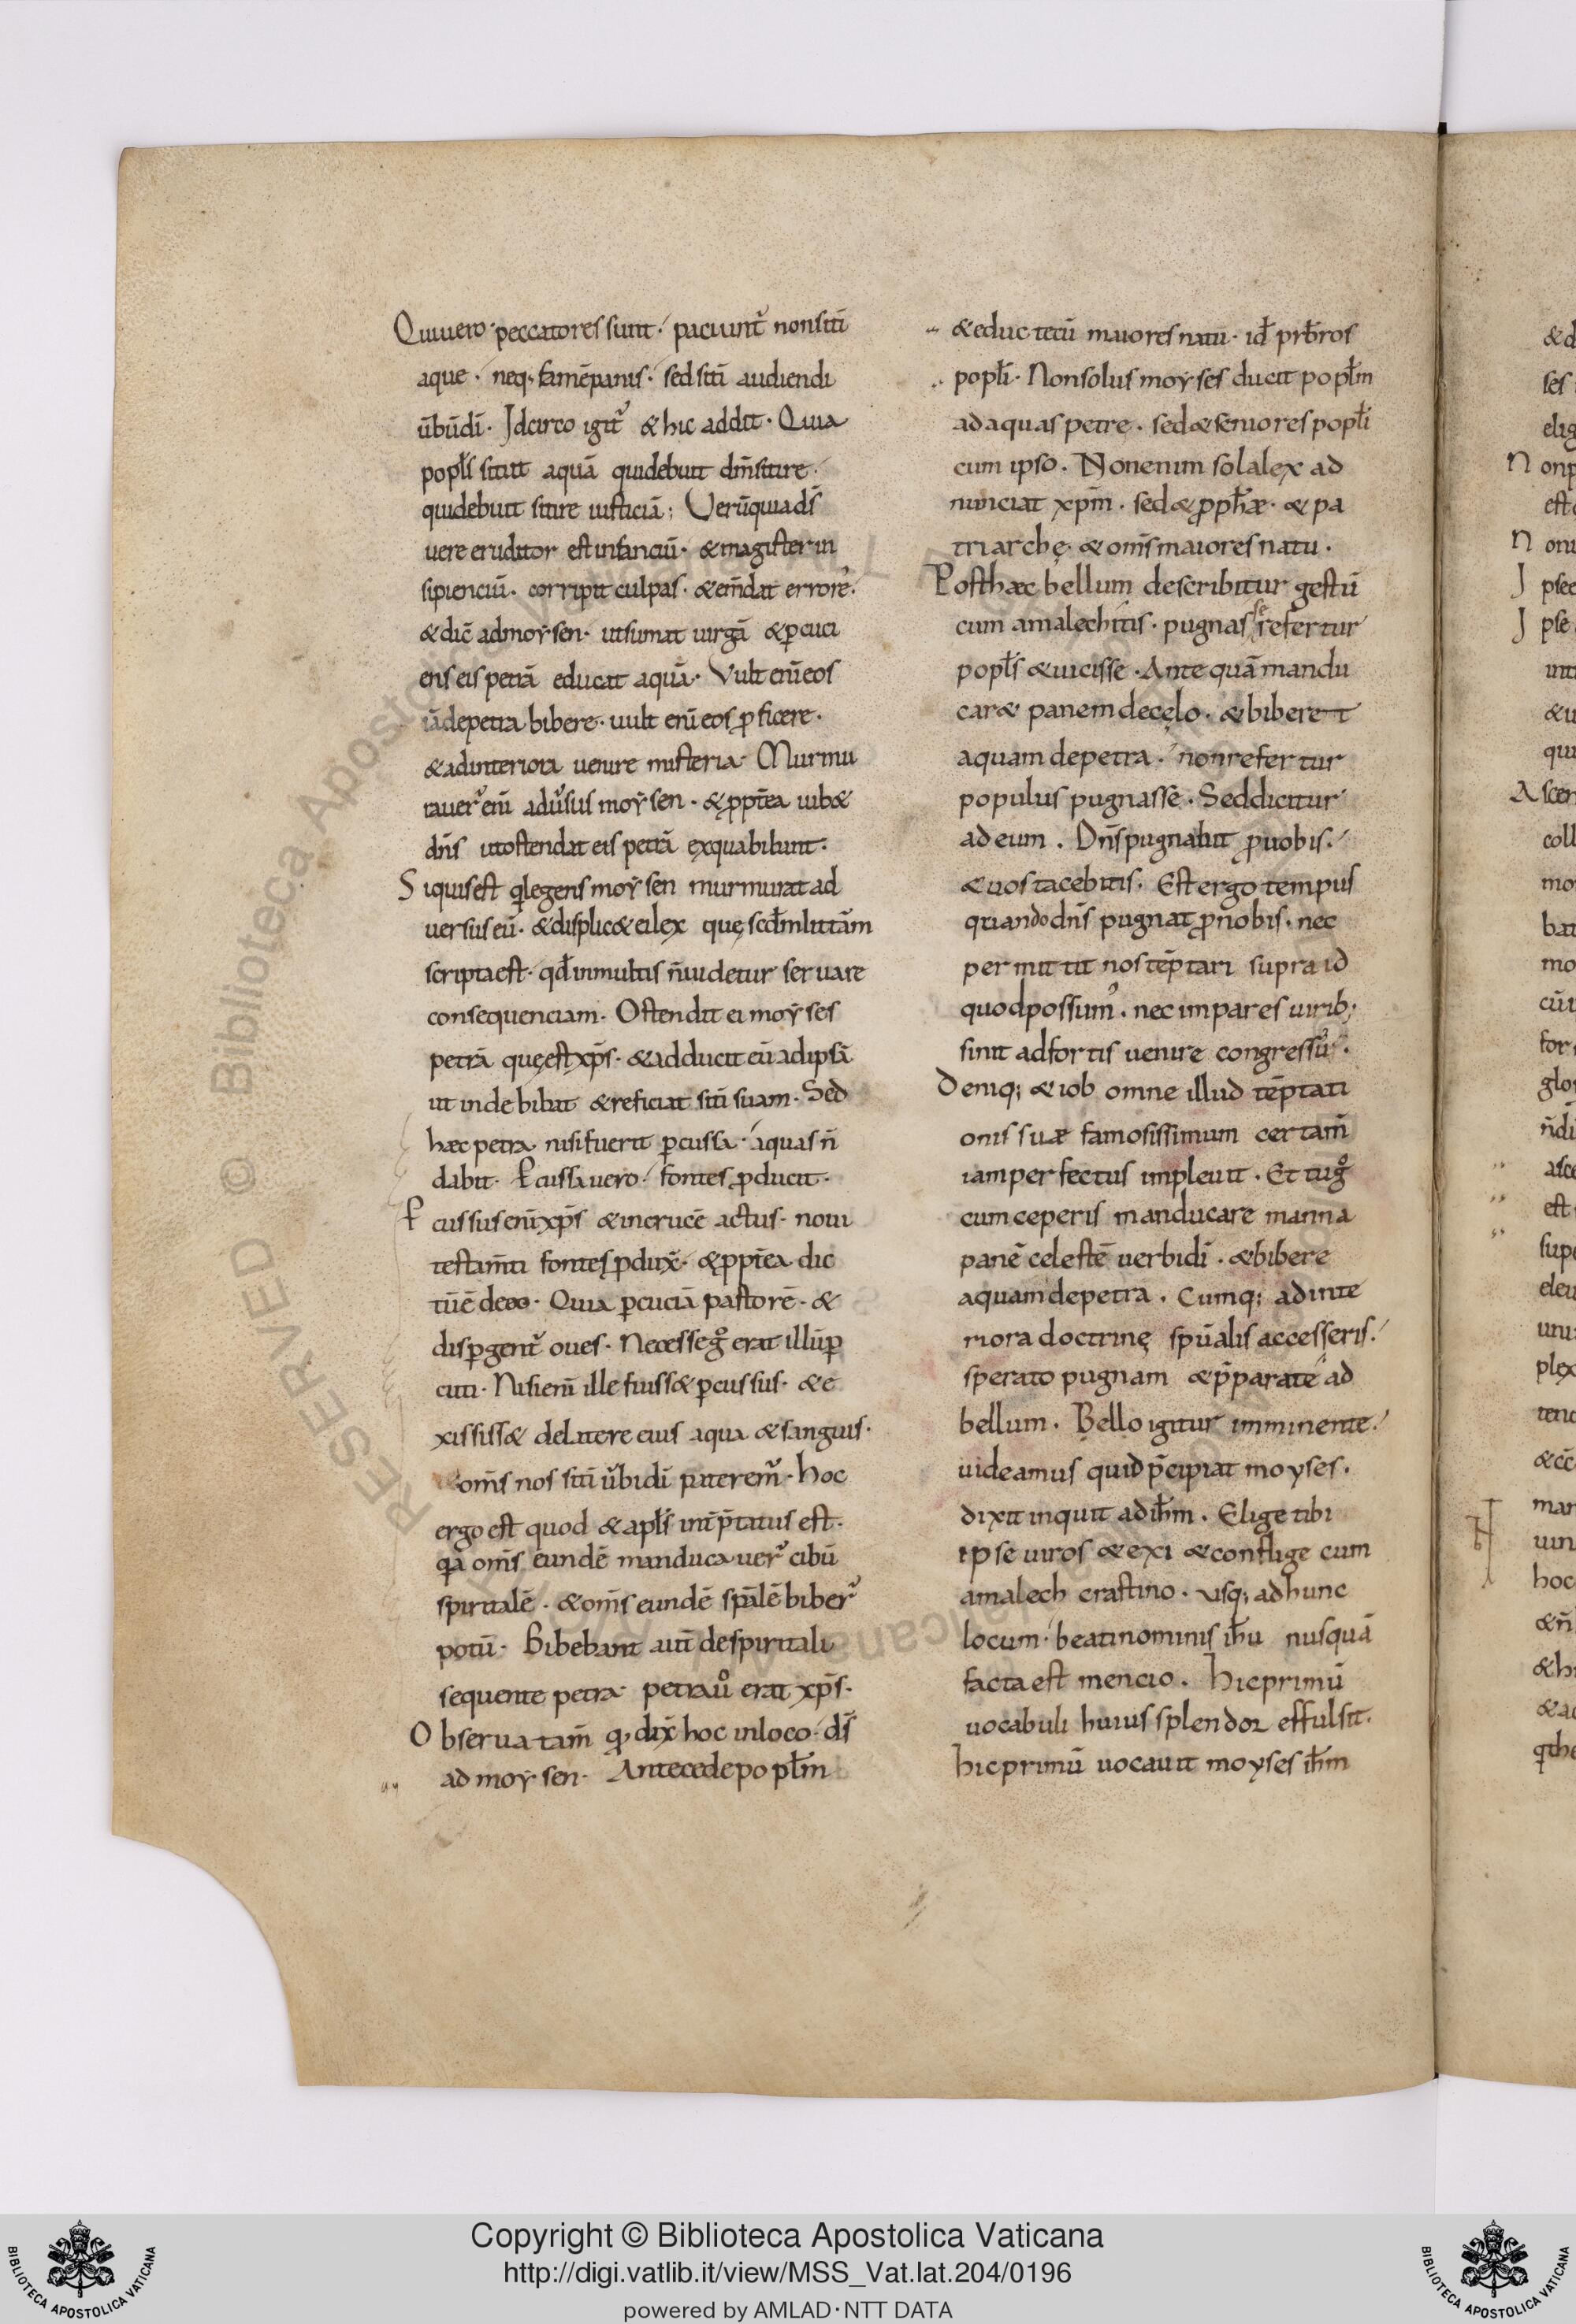 Quiuero· peccatores sunt· paciunt᷑ nonsitī
aque· neq; famēpanis· sed sitī audiendi
ūbūdī· Idcirco igit᷑ & hic addit· Quia
popl̄s sitiit aquā quidebuit dm̄sitire·
quidebuit sitire iusticiā; Uerūquiad̄s
uere eruditor est infanciū· & magister in
sipienciū· corripit culpas· & em̄dat errore᷒·
& dic̄ admoẏsen· utsumat uirgā & ꝑcuci
ens eis petrā educat aquā· Vult enī eos
iādepetra bibere· uult enī eos ꝓficere·
& adinteriora uenire misteria· Murmu
rauer᷑ enī adu᷑sus moẏsen· & ꝓpt̄ea iub&
dn̄s utostendat eis petrā exquabibunt·
Siquisest qlegens moẏsen murmurat ad
uersus eū· & displic& ei lex quę scd̄mlittām
scripta est· qd̄ inmultis n̄uidetur seruare
consequenciam· Ostendit ei moẏses
petrā quęest xp̄s· & adducit eū adipsā
ut inde bibat & reficiat sitī suam· Sed
hæc petra nisi fuerit ꝑcussa· aquas n̄
dabit· Ꝑcussa uero· fontes ꝓducit·
Ꝑcussus enī xp̄s & incrucē actus· noui
testam̄ti fontes ꝓdux̄· & ꝓpt̄ea dic
tū ē deeo· Quia ꝑcuciā pastorē· &
disꝑgent᷑ oues· Necesse gͦ erat illū ꝑ
cuti· Nisi enī ille fuiss& ꝑcussus· & e
xississ& delatere eius aqua & sanguis·
om̄s nos sitī u᷑bidī paterem᷑· hoc
ergo est quod & apl̄s int̄p̄tatus est·
qa om̄s eundē manducauer᷑ cibū
spiritalē· & om̄s eundē sp̄alē biber᷑
potū· Bibebant aut̄ despiritali
sequente petra· petra uͦ erat xp̄s·
Obserua tam̄ q; dix̄ hoc inloco· d̄s
ad moẏsen· Antecede popl̄m
& educ tecū maiores natu· id̄ prb̄ros
popl̄i· Nonsolus moẏses ducit popl̄m
ad aquas petre· sed & seniores popl̄i
cum ipso· Non enim solalex ad
nunciat xp̄m· sed & ꝓph̄æ· & pa
triarchę· & om̄s maiores natu·
Posthæc bellum describitur gestū
cum amalechitis· pugnasse refertur
popl̄s & uicisse· Ante quā mandu
car& panem decęlo· & biberet
aquam depetra· nonrefertur
populus pugnasse· Sed dicitur
ad eum· Dn̄s pugnabit ꝓuobis·
& uos tacebitis· Est ergo tempus
quando dn̄s pugnat ꝓnobis· nec
permittit nos tēptari supra id
quodpossum᷒· nec impares uirib;
sinit adfortis uenire congressu᷒·
Deniq; & iob omne illud tēptati
onis suæ famosissimum certam̄
iam perfectus impleuit· Et tu gͦ
cum ceperis manducare manna
panē celestē uerbidī· & bibere
aquam depetra· Cumq; ad inte
riora doctrinę spūalis accesseris·
sperato pugnam & p̄parate ad
bellum· Bello igitur imminente·
uideamus quid p̄cipiat moyses·
dixit inquit ad ih̄m· Elige tibi
ipse uiros & exi & conflige cum
amalech crastino· usq; ad hunc
locum· beati nominis ih̄u nusquā
facta est mencio· hic primū
uocabuli huius splendor effulsit·
hic primū uocauit moyses ih̄m
Copyright © Biblioteca Apostolica Vaticana
http://digi.vatlib.it/view/MSS_Vat.lat.204/0196
powered by AMLAD·NTT DATA